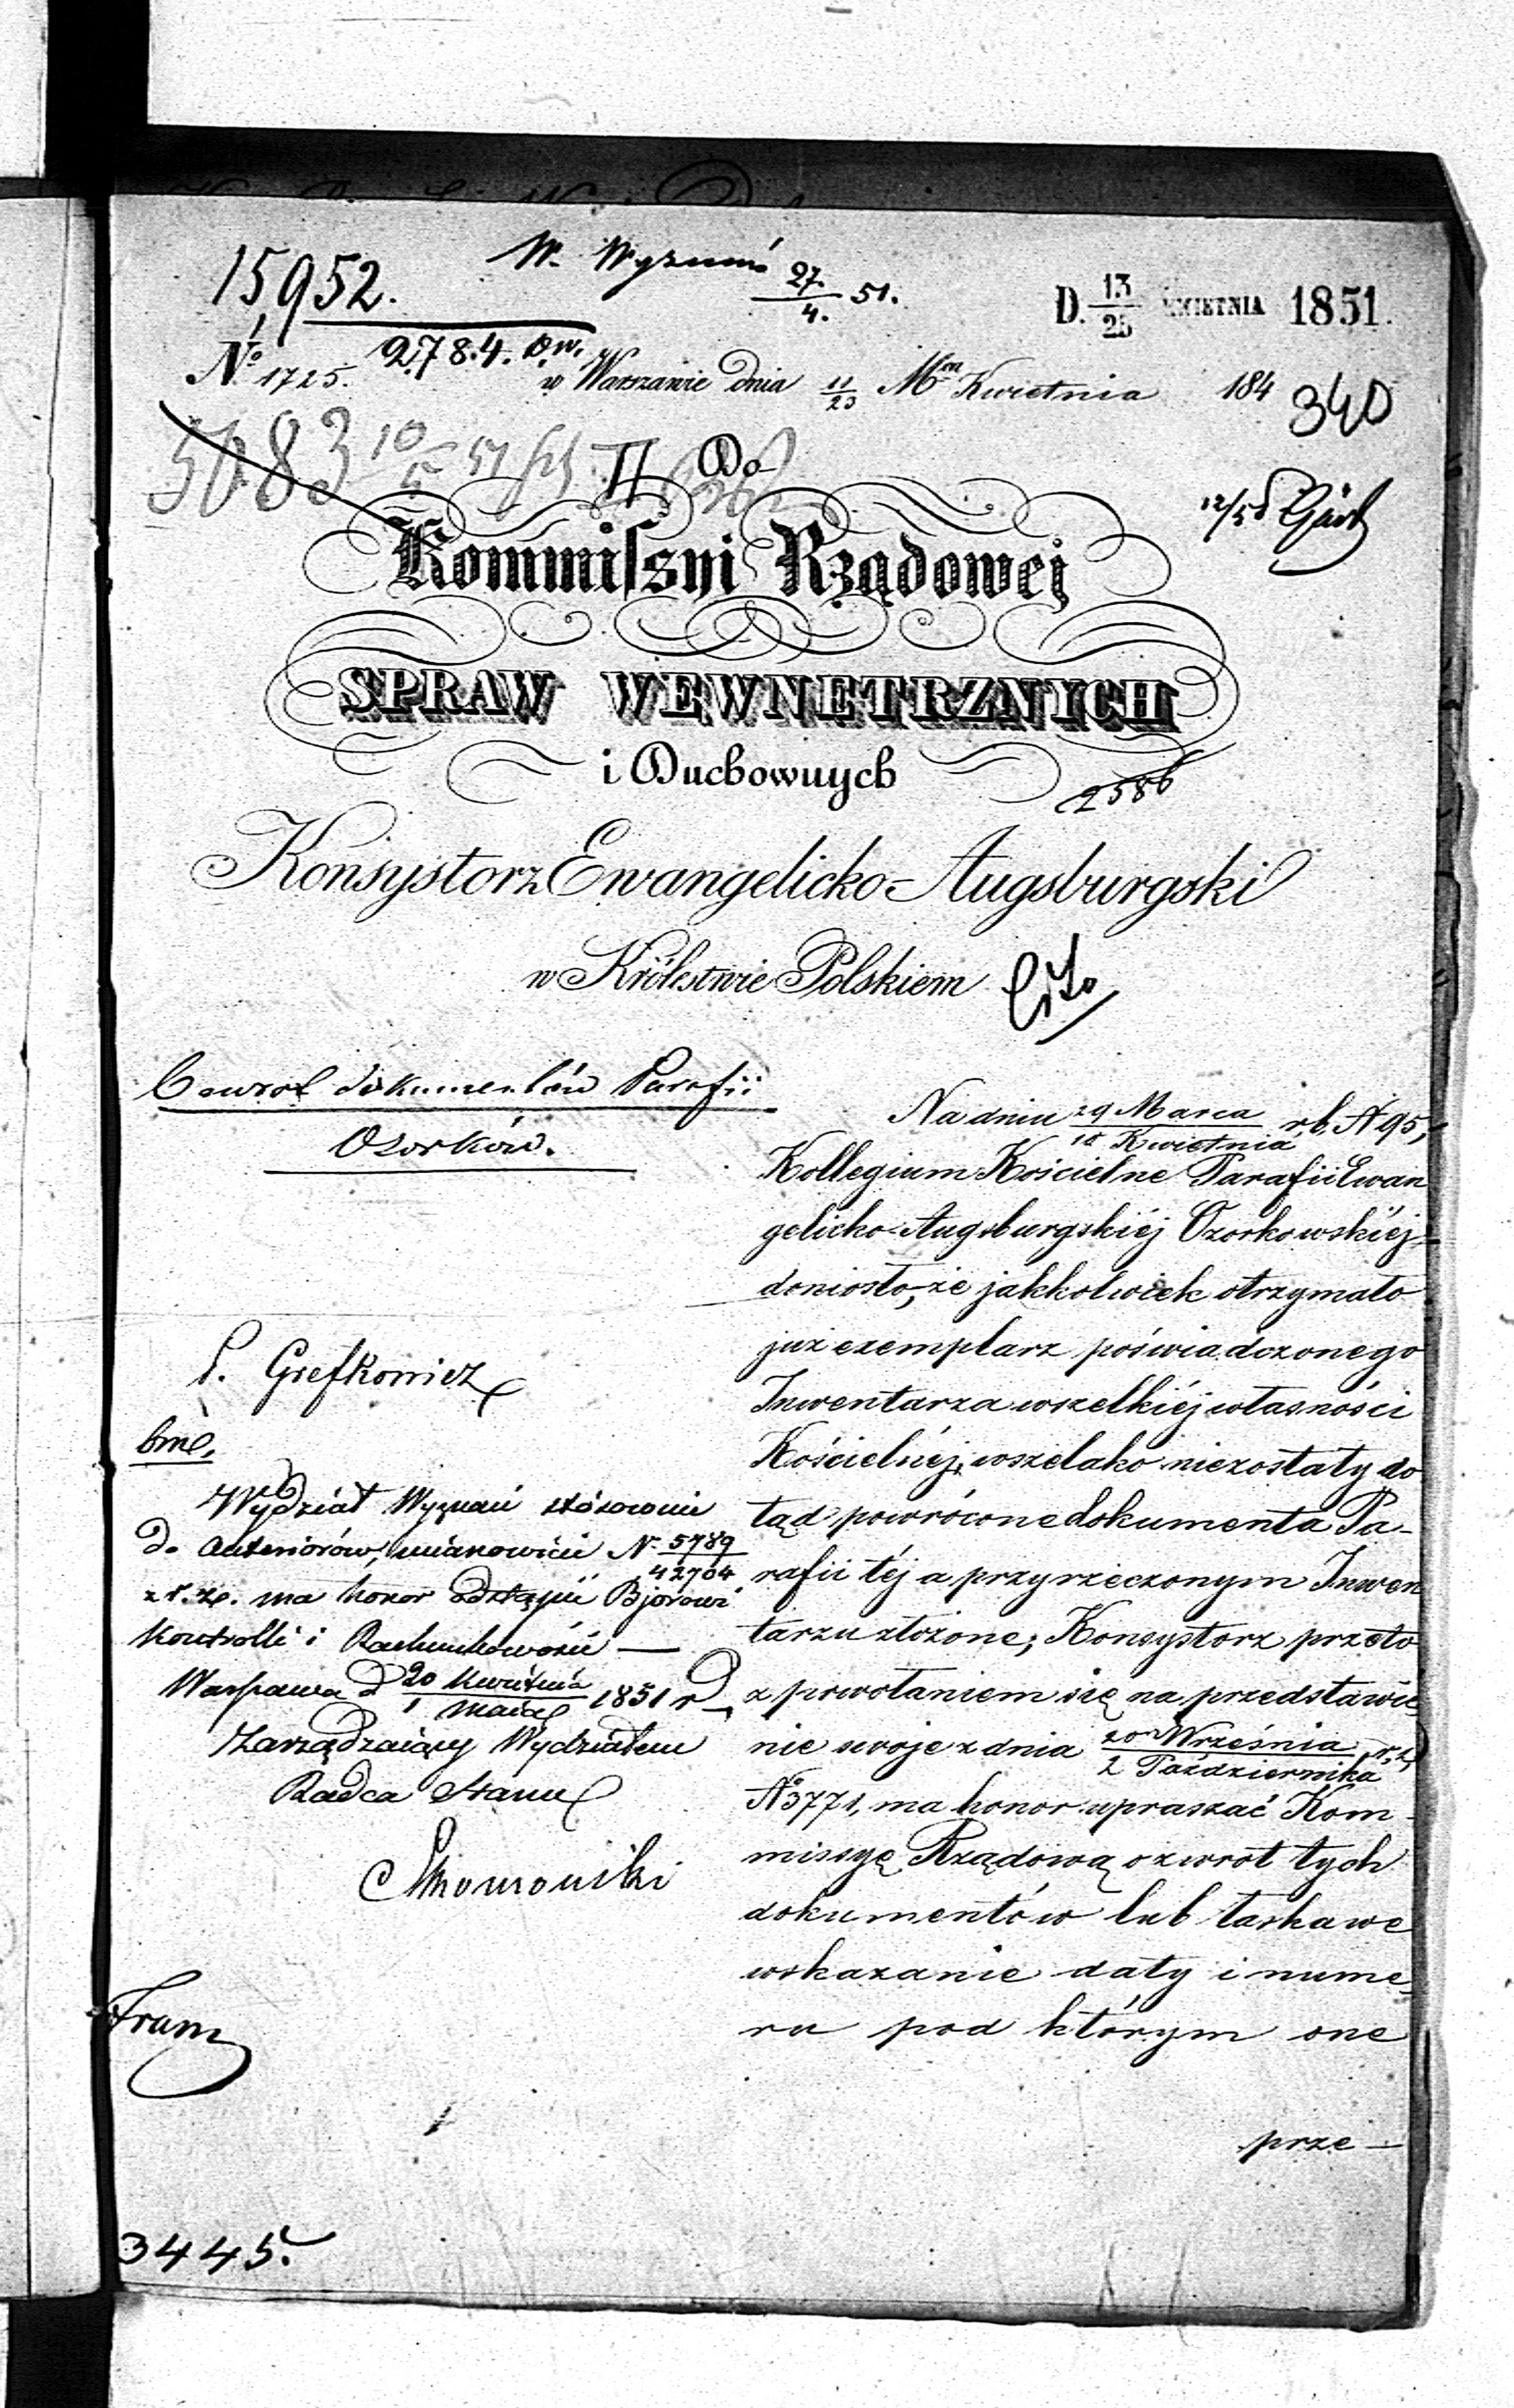 15,952.
W. Wyznań 27/4. 51.
D. 13/25 KWIETNIA 1851.
2784. D.W.
No. 1725.
w Warszawie dnia 11/23 Mca Kwietnia 184
340
5083 10/5 51
II
Do
Kommissyi Rządowej
SPRAW WEWNETRZNYCH
i Duchownych
2586
Konsystorz Ewangelicko-Augsburgski
w Królestwie Polskiem
Cito
O zwrot dokumentów Parafii
Ozorków.
Na dniu 29 Marca/10 Kwietnia r.b. N 95,
Kollegium Kościelne Parafii Ewan
gelicko-Augsburgskiéj Ozorkowskiéj
doniosło, że jakkolwiek otrzymało
już exemplarz poświadczonego
Inwentarza wszelkiéj własności
Kościelnéj, wszelako niezostały do
tąd powrócone dokumenta Pa-
rafii téj a przy rzeczonym Inwen
tarzu złożone; Konsystorz przeto
z powołaniem się na przedstawie
nie swoje z dnia 20 Września/2 Października r.z.
N 3771, ma honor upraszać Kom-
missyę Rządową o zwrot tych
dokumentów lub łaskawe
wskazanie daty i nume
ru pod którym one
prze-
P. Grefkowicz
bmo.
Wydział Wyznań stosownie
do anteriorów, mianowicie N. 5789/42704
z r. z. ma honor odstąpić Bjorowi
Kontrolli i Rachunkowości —
Warszawa d 20 Kwietnia/1 Maia 1851 r
Zarządzaiący Wydziałem
Radca Stanu
3445.